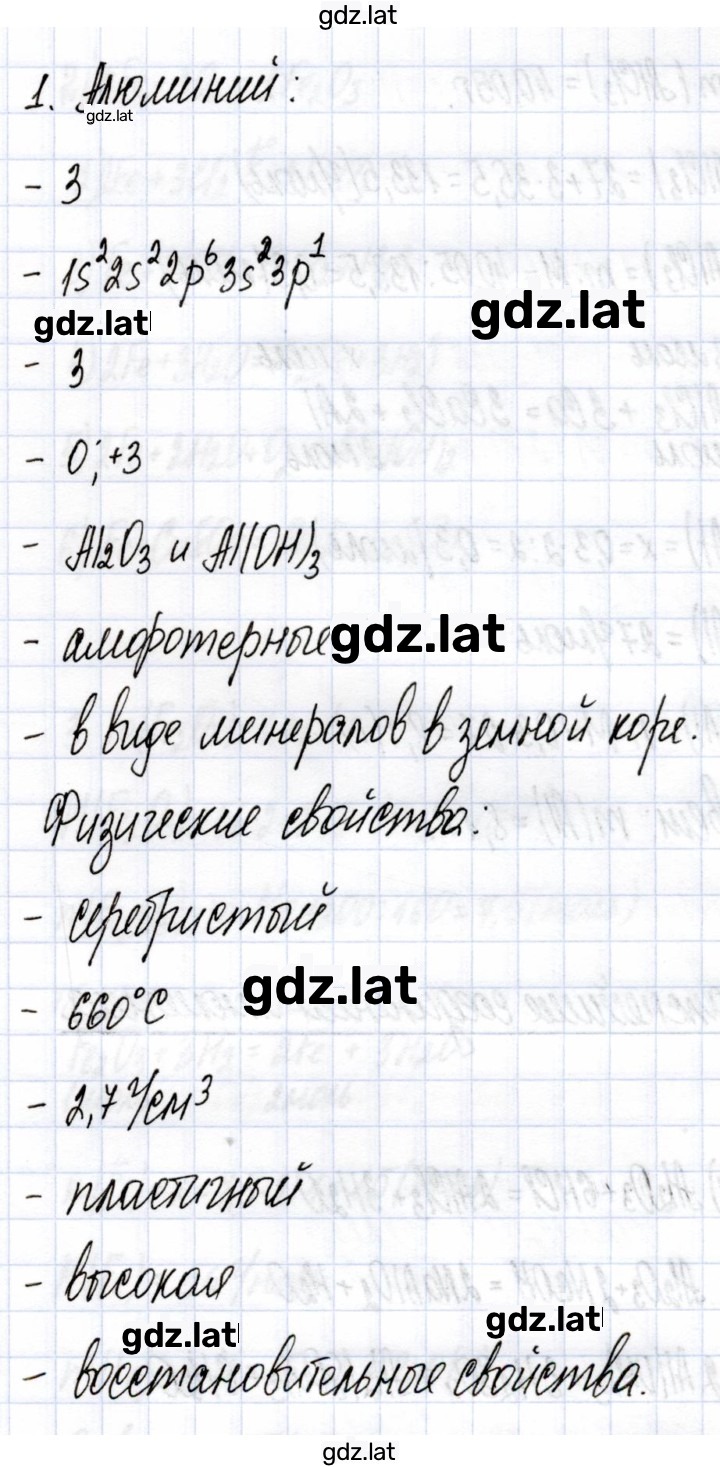 gdz.lat
1. Алюминий:
gdz.lat
- 3
- 1s²2s²2p⁶3s²3p¹
gdz.lat
gdz.lat
- 3
- 0; +3
- Al₂O₃ и Al(OH)₃
- амфотерные
gdz.lat
- в виде минералов в земной коре.
Физические свойства:
- серебристый
gdz.lat
- 660°C
- 2,7 г/см³
- пластичный
- высокая
gdz.lat
gdz.lat
- восстановительные свойства.
gdz.lat